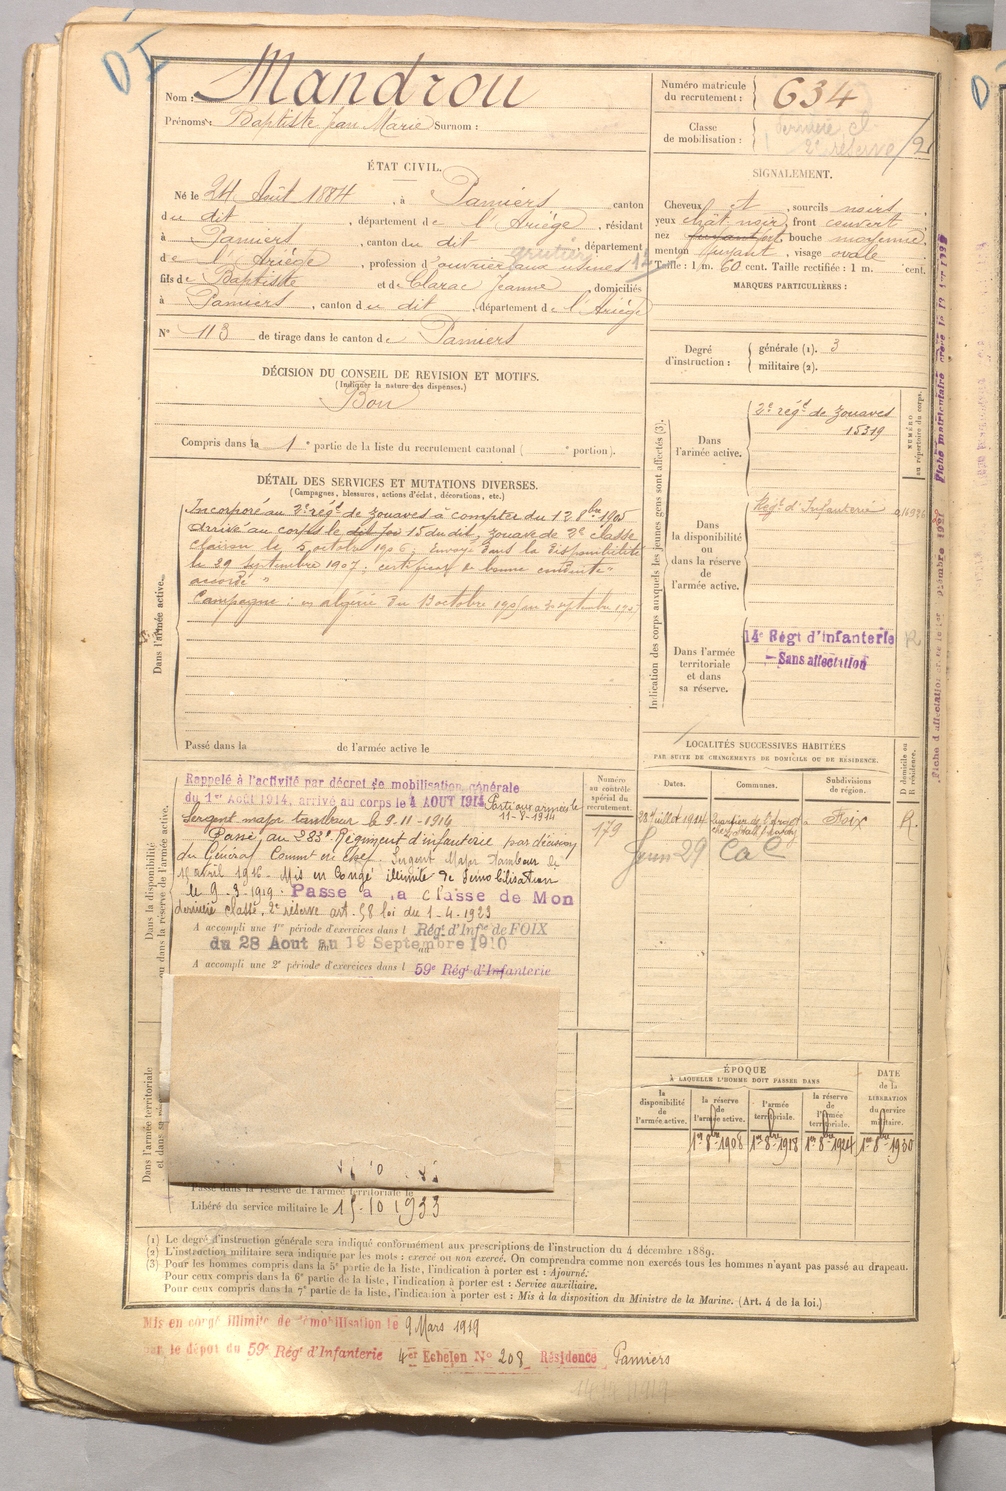 Nom : Mandrou
Prénoms : Baptiste Jean Marie Surnom :
Numéro matricule du recrutement : 634
Classe de mobilisation : dernière cl. 2e réserve
ÉTAT CIVIL.
Né le 24 Août 1884, à Pamiers canton
du dit, département de l'Ariège, résidant
à Pamiers, canton du dit, département
de l'Ariège, profession d'ouvrier aux usines
fils de Baptiste et de Clarac Jeanne, domiciliés
à Pamiers, canton du dit, département de l'Ariège
N° 113 de tirage dans le canton de Pamiers
SIGNALEMENT.
Cheveux et, sourcils noirs,
yeux chât. noir, front couvert
nez fort bouche moyenne,
menton fuyant, visage ovale
Taille : 1 m. 60 cent. Taille rectifiée : 1 m. cent.
MARQUES PARTICULIÈRES :
Degré d'instruction : générale (1). 3
militaire (2).
DÉCISION DU CONSEIL DE REVISION ET MOTIFS.
(Indiquer la nature des dispenses.)
Bon
Compris dans la 1e partie de la liste du recrutement cantonal ( e portion).
DÉTAIL DES SERVICES ET MUTATIONS DIVERSES.
(Campagnes, blessures, actions d'éclat, décorations, etc.)
Dans l'armée active.
Incorporé au 2e régt de zouaves à compter du 12 8bre 1905
Arrivé au corps le 15 du dit, zouave de 2e classe
Clairon le 5 octobre 1906, Envoyé dans la disponibilité
le 29 septembre 1907 ; certificat de bonne conduite "
accordé "
Campagne : en algérie du 13 octobre
Passé dans la de l'armée active le
Indication des corps auxquels les jeunes gens sont affectés (3).
NUMÉRO au répertoire du corps.
Dans l'armée active.
2e régt de zouaves
15319
Dans la disponibilité ou dans la réserve de l'armée active.
Régt d'Infanterie
Dans l'armée territoriale et dans sa réserve.
14e Régt d'Infanterie
- Sans affectation
LOCALITÉS SUCCESSIVES HABITÉES
PAR SUITE DE CHANGEMENTS DE DOMICILE OU DE RÉSIDENCE.
Dates. Communes. Subdivisions de région. D domicile ou R résidence.
28 juillet 1914 Foix R.
Dans la disponibilité ou dans la réserve de l'armée active.
Rappelé à l'activité par décret de mobilisation générale
du 1er AOUT 1914, arrivé au corps le 4 AOUT 1914 Parti aux armées le
11-8-1914
Sergent major tambour le 9-11-1914
Passé au 283e Régiment d'infanterie par décision
du Général Commt en Chef. Sergent Major Tambour le
15 avril 1916. Mis en Congé illimité de Démobilisation
le 9-3-1919. Passé à la Classe de Mon
dernière classe, 2e réserve art. 58 loi du 1-4-1923
A accompli une 1re période d'exercices dans l Régt d'Infie de FOIX
du 28 Aout au 19 Septembre 1910
A accompli une 2e période d'exercices dans l 59e Régt d'Infanterie
Numéro au contrôle spécial du recrutement.
179
Dans l'armée territoriale
Passé dans la réserve de l'armée territoriale le
Libéré du service militaire le 15-10 1933
ÉPOQUE
À LAQUELLE L'HOMME DOIT PASSER DANS
DATE de la LIBÉRATION du service militaire.
la disponibilité de l'armée active. la réserve de l'armée active. l'armée territoriale. la réserve de l'armée territoriale.
1er 8bre 1908 1er 8bre 1918 1er 8bre 1924 1er 8bre 1930
(1) Le degré d'instruction générale sera indiqué conformément aux prescriptions de l'instruction du 4 décembre 1889.
(2) L'instruction militaire sera indiquée par les mots : exercé ou non exercé. On comprendra comme non exercés tous les hommes n'ayant pas passé au drapeau.
(3) Pour les hommes compris dans la 5e partie de la liste, l'indication à porter est : Ajourné.
Pour ceux compris dans la 6e partie de la liste, l'indication à porter est : Service auxiliaire.
Pour ceux compris dans la 7e partie de la liste, l'indication à porter est : Mis à la disposition du Ministre de la Marine. (Art. 4 de la loi.)
Mis en congé illimité de démobilisation le 9 Mars 1919
par le dépot du 59e Régt d'Infanterie 4er Echelon No 208 Résidence Pamiers